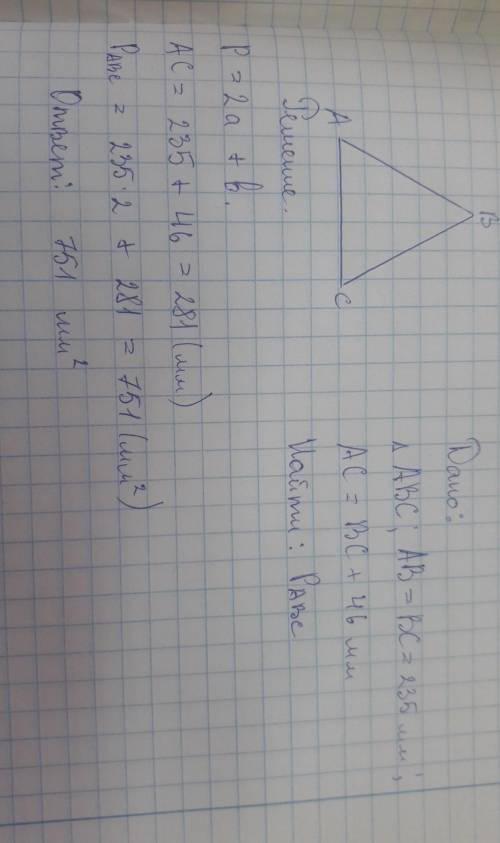 B
A
C
Дано:
△ABC; AB = BC = 235 мм;
AC = BC + 46 мм
Найти: PABC
Решение.
P = 2a + b.
AC = 235 + 46 = 281 (мм)
PABC = 235·2 + 281 = 751 (мм²)
Ответ: 751 мм²